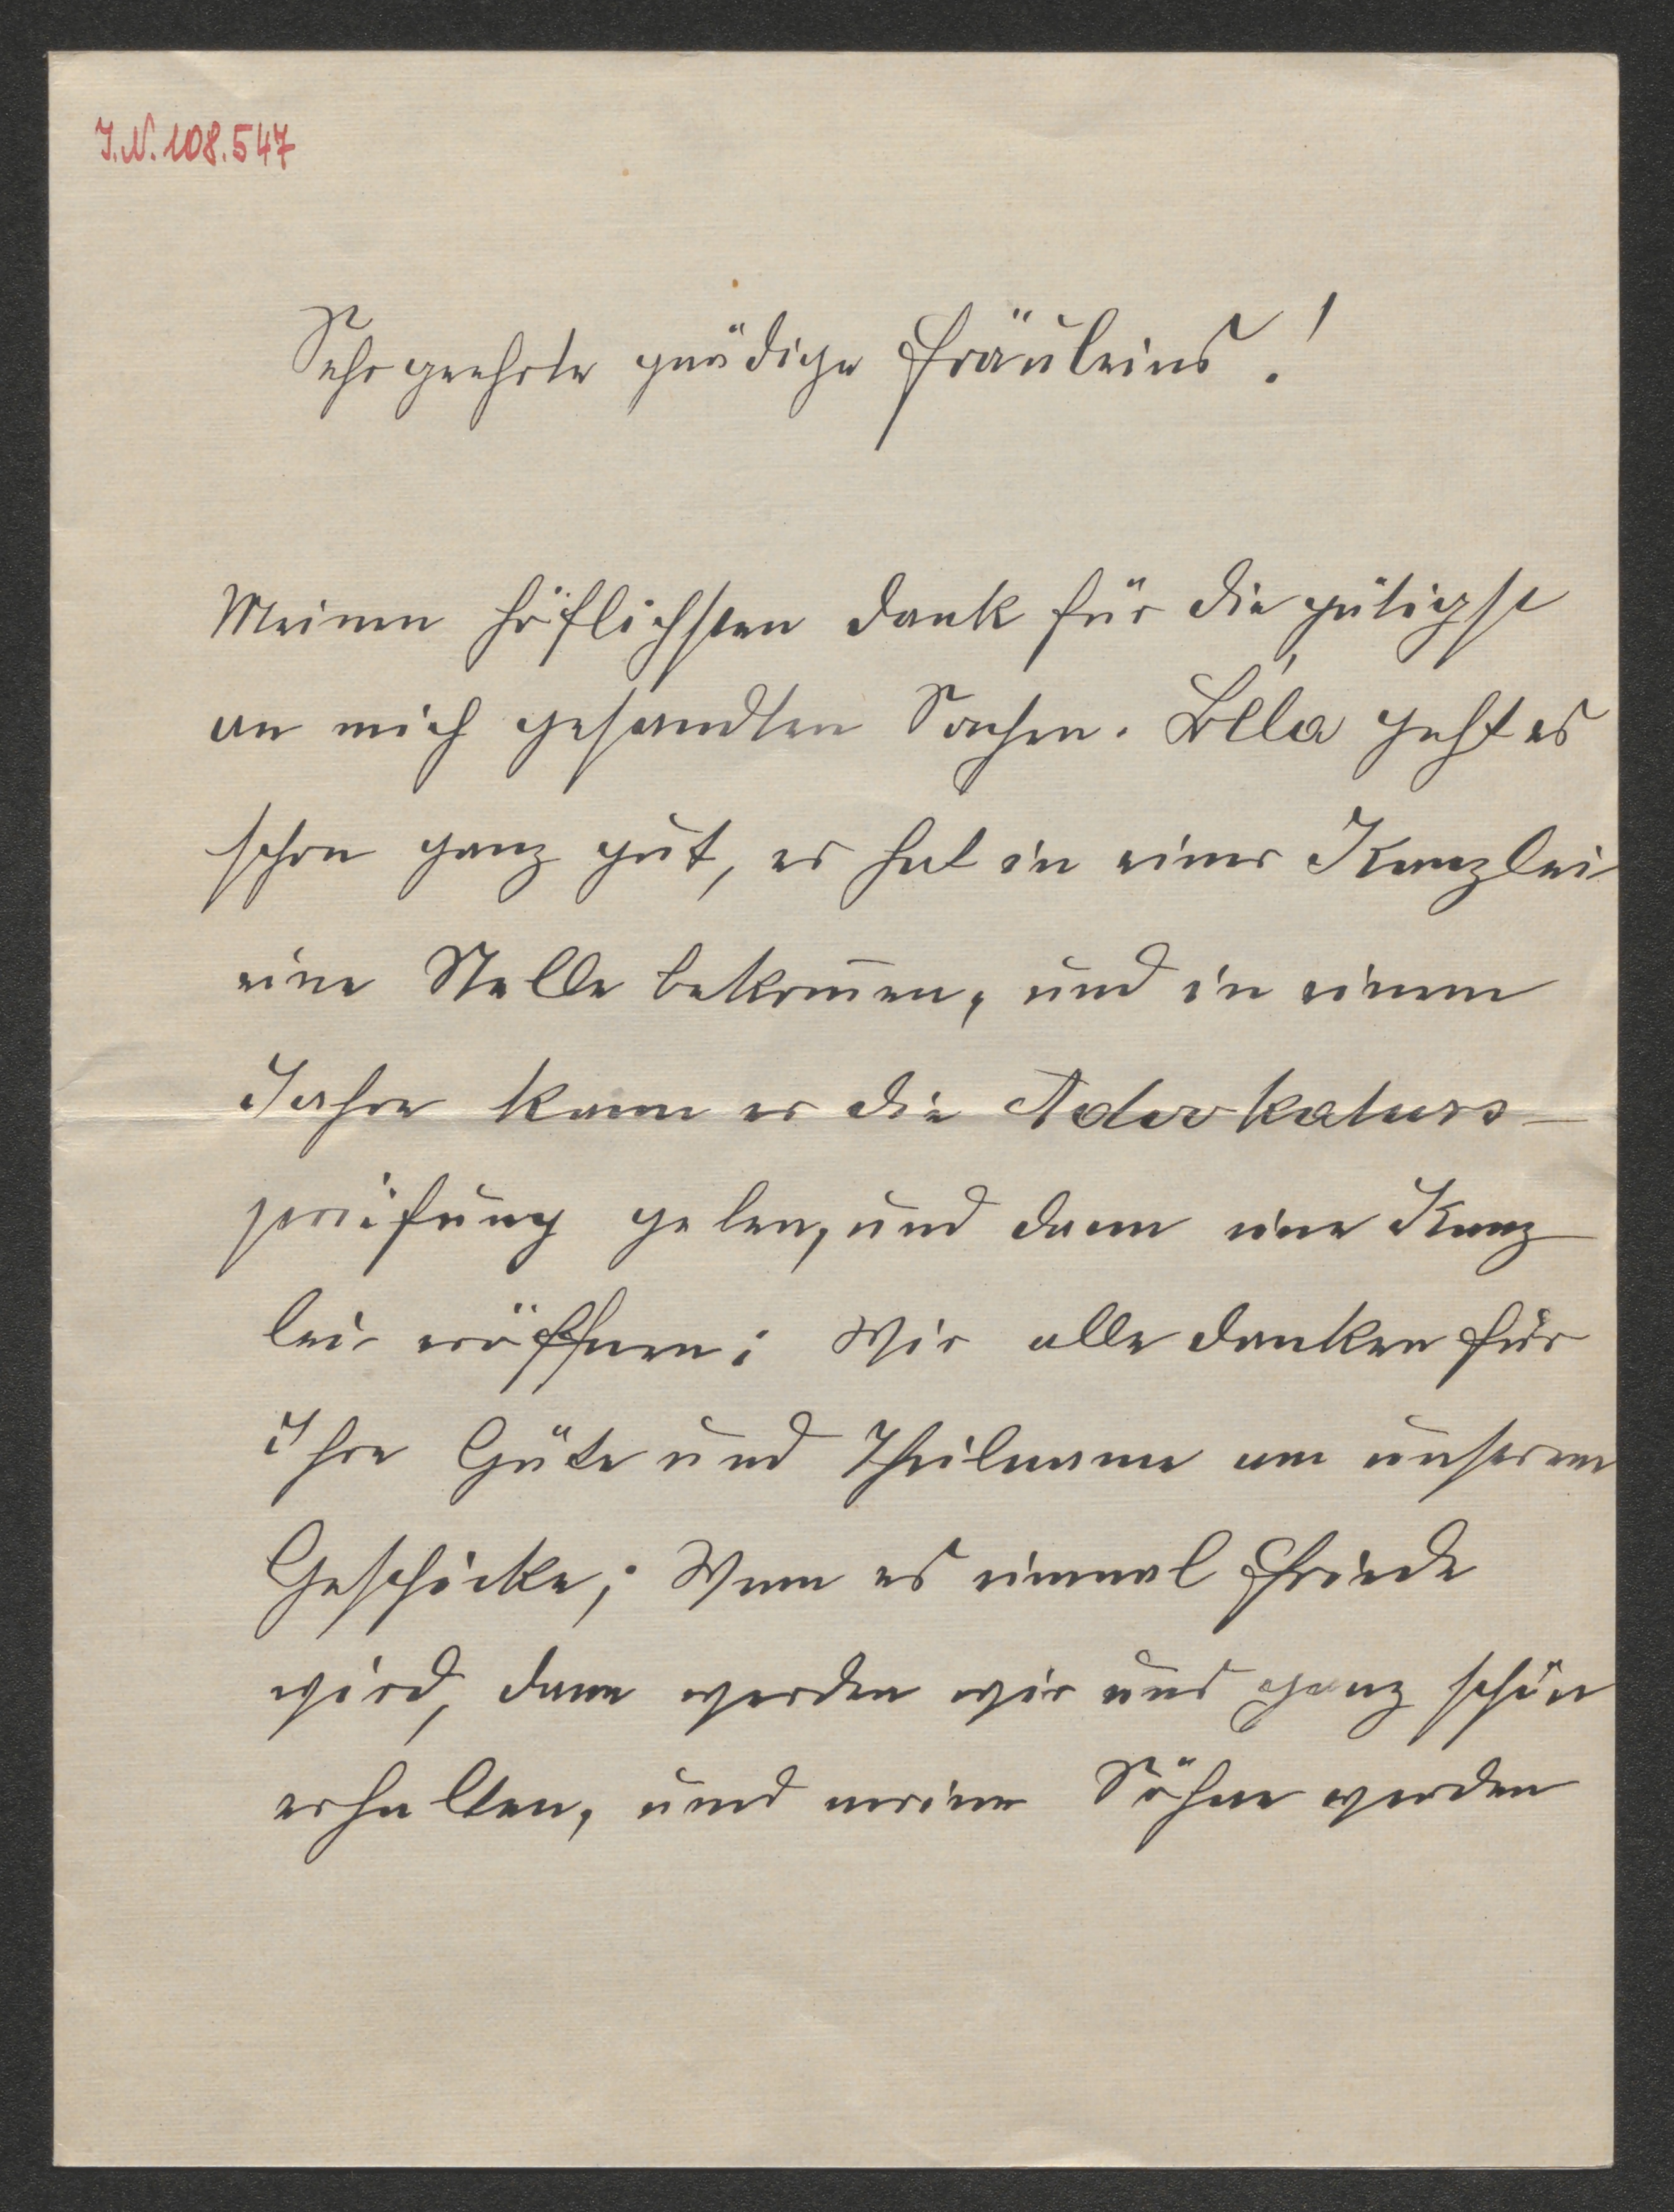 J.N. 108.547
Sehr geehrte gnädige Fräuleins!
Meinen höflichsten Dank für die gütigst
an mich gesandten Sachen. Béla geht es
schon ganz gut, er hat in einer Kanzlei
eine Stelle bekom̅en, und in einem
Jahre kann er die Advokaturs-
prüfung geben, und dann eine Kanz
lei eröffnen; Wir alle danken für
Ihre Güte und Theilname an unserem
Geschicke; Wenn es einmal Friede
wird, dann werden wir uns ganz schön
erhalten, und meine Söhne werden